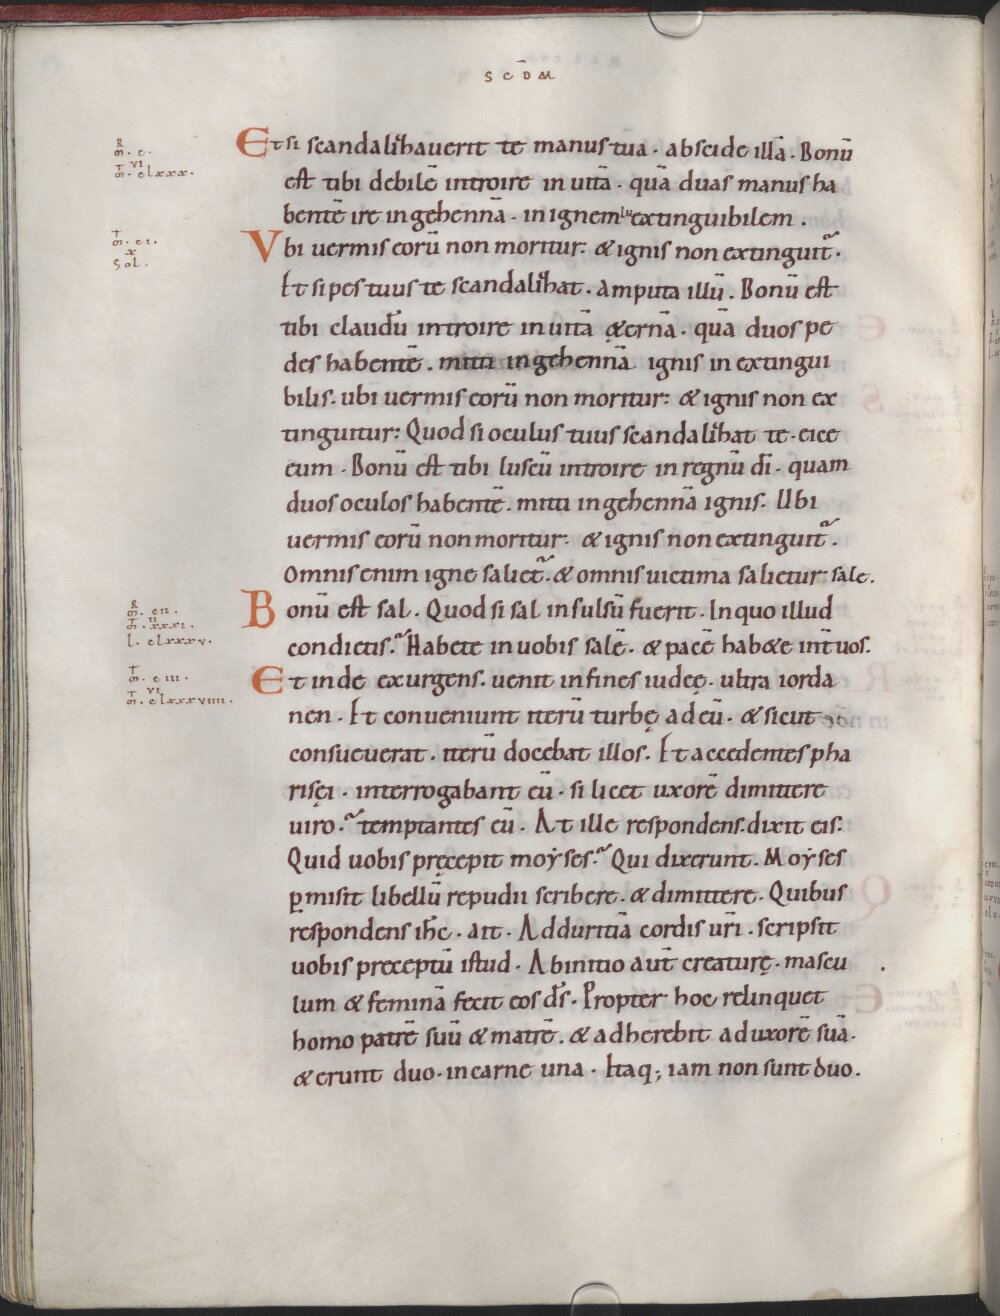 SCD̄M
R
m̄. c.
VI
m̄. clxxx.
Et si scandalizauerit te manus tua · abscide illā · Bonū
est tibi debilē introire in uitā · quā duas manus ha
bentē ire in gehennā · in ignem inextinguibilem .
m̄. ci.
x
Sol.
Vbi uermis eorū non moritur: & ignis non extinguit᷑.
Et si pes tuus te scandalizat . amputa illū . Bonū est
tibi claudū introire in uitā æternā . quā duos pe
des habentē . mitti in gehennā ignis inextingui
bilis. ubi uermis eorū non moritur: & ignis non ex
tinguitur: Quod si oculus tuus scandalizat te . eice
eum . Bonū est tibi luscū introire in regnū dī . quam
duos oculos habentē . mitti in gehennā ignis. Ubi
uermis eorū non moritur. & ignis non extinguit᷑.
Omnis enim igne saliet᷑. & omnis uictima salietur sale.
R
m̄. cii.
II
m̄. xxxi.
l. clxxxv.
Bonū est sal . Quod si sal insulsū fuerit . In quo illud
condietis. Habete in uobis salē . & pacē habete int̄ uos.
m̄. ciii.
VI
m̄. clxxxviiii.
Et inde exurgens . uenit in fines iudeę . ultra iorda
nen . Et conueniunt iterū turbę ad eū . & sicut
consueuerat . iterū docebat illos. Et accedentes pha
risęi . interrogabant eū . si licet uxorē dimittere
uiro. temptantes eū . At ille respondens. dixit eis.
Quid uobis pręcepit moẏses. Qui dixerunt. Moẏses
ꝑmisit libellū repudii scribere . & dimittere . Quibus
respondens ih̄c . ait . Ad duritiā cordis ur̄i . scripsit
uobis preceptū istud . Ab initio aut̄ creaturę . mascu
lum & feminā fecit eos ds̄. Propter hoc relinquet
homo patrē suū & matrē . & adherebit ad uxorē suā.
& erunt duo . in carne una . Itaq; iam non sunt duo.